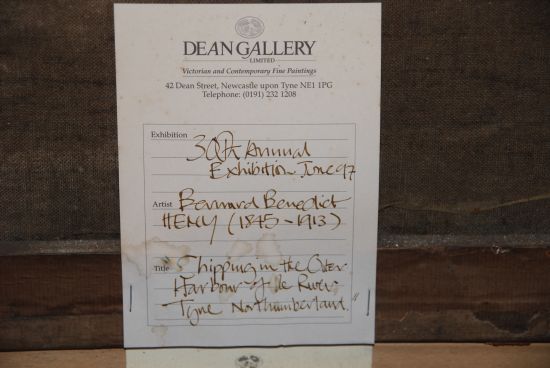 DEAN GALLERY
LIMITED
Victorian and Contemporary Fine Paintings
42 Dean Street, Newcastle upon Tyne NE1 1PG
Telephone: (0191) 232 1208
Exhibition 30th Annual
Exhibition June 97
Artist Bernard Benedict
HEMY (1845-1913)
Title "Shipping in the Outer
Harbour of the River
Tyne Northumberland."